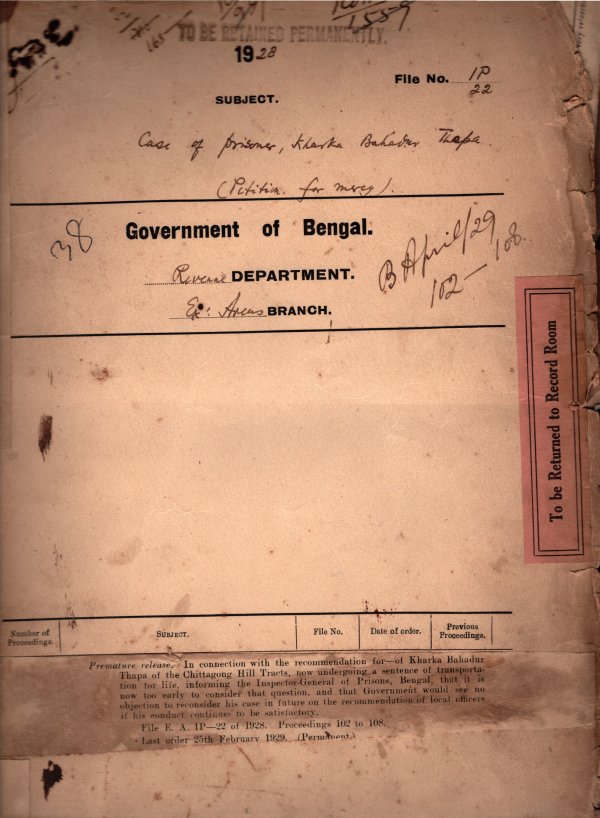 1559
TO BE RETAINED PERMANENTLY.
1928
File No. 1P
22
SUBJECT.
Case of prisoner, Kharka Bahadur Thapa.
(Petition for mercy).
38
Government of Bengal.
B April/29
102—108.
Revenue DEPARTMENT.
Ex: Areas BRANCH.
To be Returned to Record Room
Number of Proceedings.
SUBJECT.
File No.
Date of order.
Previous Proceedings.
Premature release. In connection with the recommendation for—of Kharka Bahadur
Thapa of the Chittagong Hill Tracts, now undergoing a sentence of transporta-
tion for life, informing the Inspector-General of Prisons, Bengal, that it is
now too early to consider that question, and that Government would see no
objection to reconsider his case in future on the recommendation of local officers
if his conduct continues to be satisfactory.
File E. A. 1P—22 of 1928. Proceedings 102 to 108.
Last order 25th February 1929. (Permanent.)